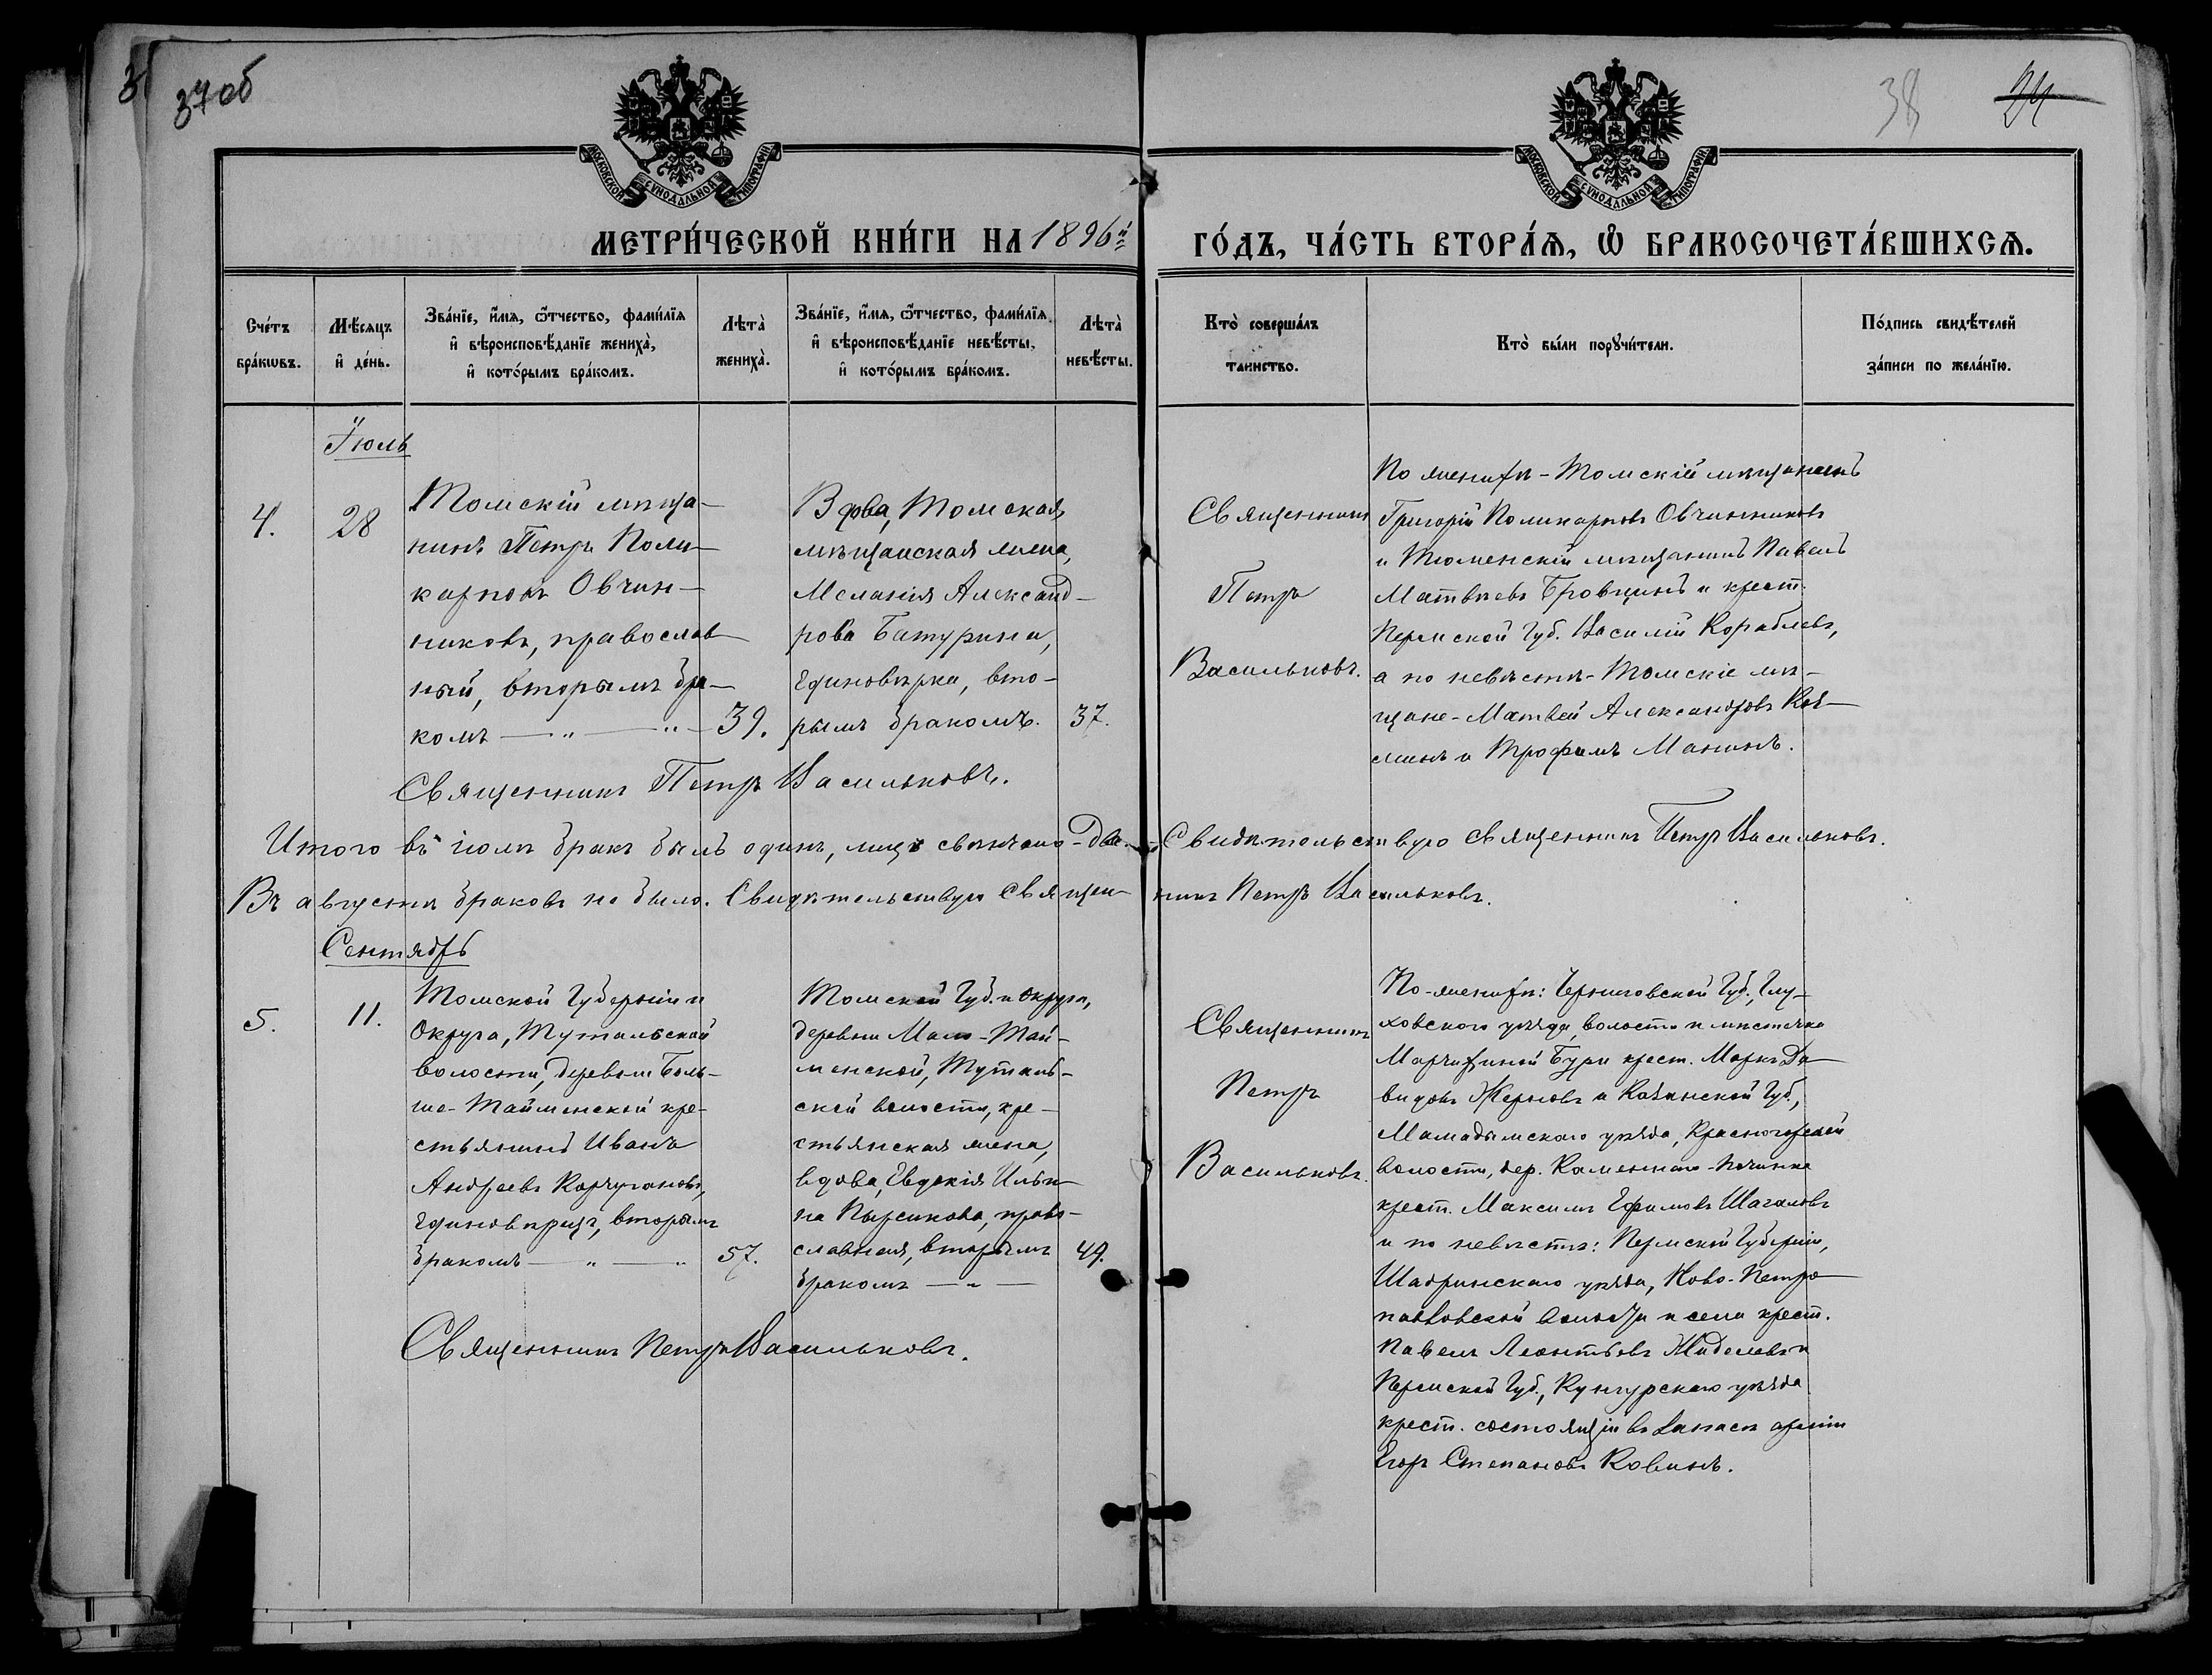 37 об
38
24
МОСКОВСКОЙ СѴНОДАЛЬНОЙ ТИПОГРАФІИ
МОСКОВСКОЙ СѴНОДАЛЬНОЙ ТИПОГРАФІИ
МЕТРИ́ЧЕСКОЙ КНИ́ГИ НА 1896й
ГО́ДЪ, ЧА́СТЬ ВТОРА́Ѧ, Ѡ҆ БРАКОСОЧЕТА́ВШИХСѦ.
Сче́тъ
бра́кѡвъ.
Мѣ́сяцъ
и҆ де́нь.
Зва́нїе, и҆́мѧ, ѻ҆́тчество, фами́лїѧ
и҆ вѣроисповѣ́данїе жениха̀,
и҆ кото́рымъ бра́комъ.
Лѣта̀
жениха̀.
Зва́нїе, и҆́мѧ, ѻ҆́тчество, фами́лїѧ
и҆ вѣроисповѣ́данїе невѣ́сты,
и҆ кото́рымъ бра́комъ.
Лѣта̀
невѣ́сты.
Кто̀ соверша́лъ
таинство.
Кто̀ бы́ли порꙋчи́тели.
По́дпись свидѣ́телей
за́писи по жела́нїю.
Іюль
4.
28
Томскій мѣща-
нинъ Петръ Поли-
карповъ Овчин-
никовъ, православ-
ный, вторымъ бра-
комъ — " — " —
39.
Вдова, Томская
мѣщанская жена,
Меланія Александ-
рова Батурина,
единовѣрка, вто-
рымъ бракомъ.
37.
Священникъ
Петръ
Васильковъ.
По женихѣ - Томскій мѣщанинъ
Григорій Поликарповъ Овчинниковъ
и Тюменскій мѣщанинъ Павелъ
Матвѣевъ Бровцинъ и крест.
Пермской Губ. Василій Кораблевъ,
а по невѣстѣ - Томскіе мѣ-
щане - Матвей Александровъ Коз-
минъ и Трофимъ Мановъ.
Священникъ Петръ Васильковъ.
Итого въ іюлѣ бракъ былъ одинъ, лицъ свѣнчано - два. Свидѣтельствую священникъ Петръ Васильковъ.
Въ августѣ браковъ не было. Свидѣтельствую священ-никъ Петръ Васильковъ.
Сентябрь
5.
11.
Томской Губерніи и
Округа, Тутальской
волости, деревни Боль-
ше-Тайменской кре-
стьянинъ Иванъ
Андреевъ Корчугановъ,
единовѣрецъ, вторымъ
бракомъ — " — "
57.
Томской Губ. и Округа,
деревни Мало-Тай-
менской, Туталь-
ской волости, кре-
стьянская жена,
вдова, Евдокія Ильи-
на Пырсикова, право-
славная, вторымъ
бракомъ — " —
49.
Священникъ
Петръ
Васильковъ.
По-женихѣ: Черниговской Губ., Глу-
ховского уѣзда, волости и мѣстечка
Марчихиной Буди крест. Маркъ Да-
видовъ Жерновъ и Казанской Губ.,
Мамадышскаго уѣзда, Красногорской
волости, дер. Каменнаго-Починка
крест. Максимъ Ефимовъ Шагаловъ
и по невѣстѣ: Пермской Губерніи,
Шадринскаго уѣзда, Ново-Петро-
павловской волости и села крест.
Павелъ Леонтьевъ Жиделевъ и
Пермской Губ., Кунгурскаго уѣзда
крест. состоящій въ запасѣ арміи
Егоръ Степановъ Ковинъ.
Священникъ Петръ Васильковъ.